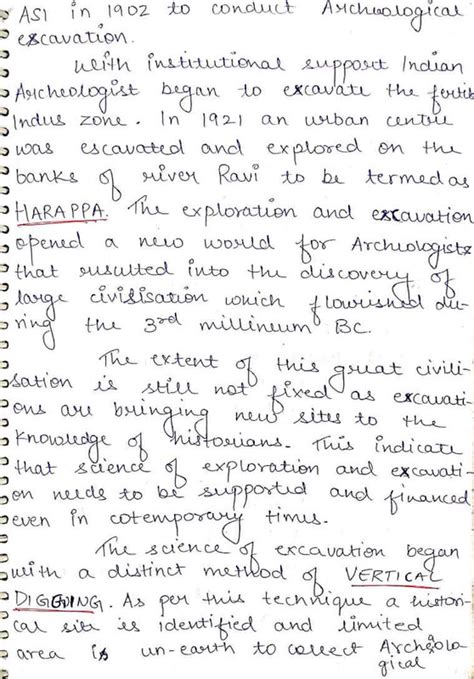 ASI in 1902 to conduct Archeological
escavation.
With institutional support Indian
Archeologist began to excavate the fertile
Indus zone. In 1921 an urban centre
was escavated and explored on the
banks of river Ravi to be termed as
HARAPPA. The exploration and excavation
opened a new world for Archeologists
that resulted into the discovery of
large civilisation which flourished du-
ring the 3rd millineum BC.
The extent of this great civili-
sation is still not fixed as excavati-
ons are bringing new sites to the
knowledge of historians. This indicate
that science of exploration and excavati-
on needs to be supported and financed
even in cotemporary times.
The science of excavation began
with a distinct method of VERTICAL
DIGGING. As per this technique a histori-
cal site is identified and limited
area is un-earth to collect Archeolo
gical